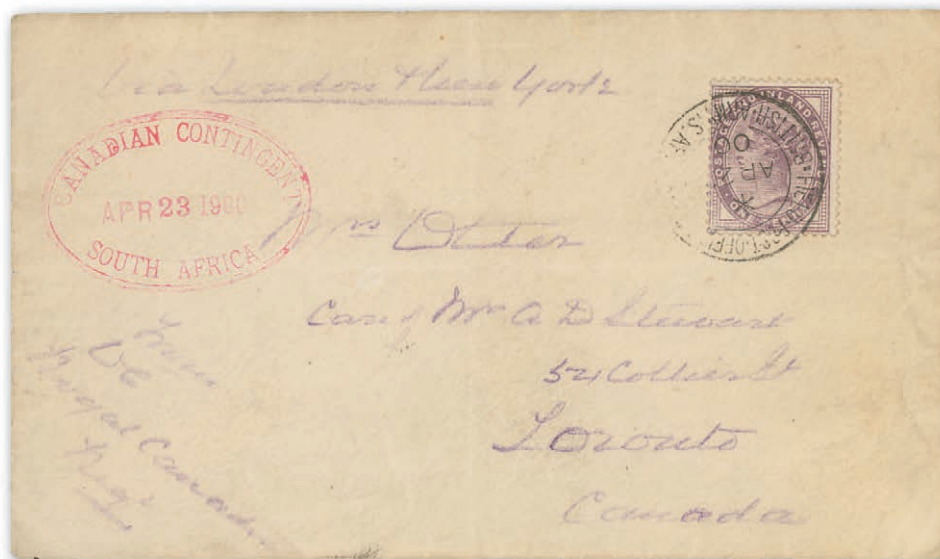 Via London & New York
CANADIAN CONTINGENT
APR 23 1900
SOUTH AFRICA
FIELD POST OFFICE
BRITISH ARMY S. AF
AP
00
POSTAGE AND INLAND REVENUE
Mrs Otter
Care of Mr A D Stewart
54 Collier St
Toronto
Canada
From
OC
Royal Canadian
Regt